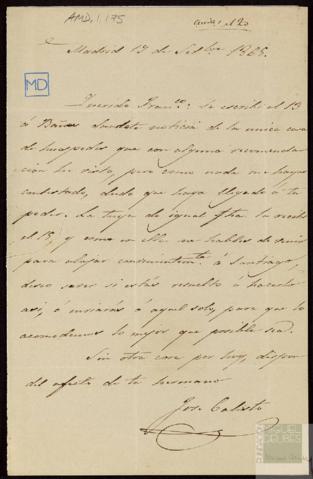 AMD, 1, 175
el 20
Madrid 17 de Setbre 1868.
MD
Querido Franco: Te escribí el 13
á dandote noticia de la unica casa
de huespedes que con alguna recomenda-
ción he visto, pero como nada me hayas
contestado, dudo que haya llegado á tu
poder. La tuya de igual fha la recibí
el 15, y como en ella me hablas de venir
para alojar á Santiago,
deseo saber si estás resuelto á hacerlo
asi, ó enviarás á aquel solo, para que lo
acomodemos lo mejor que posible sea.
Sin otra cosa por hoy, dispon
del afecto de tu hermano
José Calisto
MIGUEL